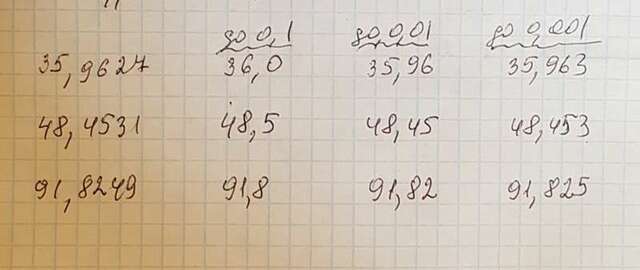 до 0,1 до 0,01 до 0,001
35,9627 36,0 35,96 35,963
48,4531 48,5 48,45 48,453
91,8249 91,8 91,82 91,825